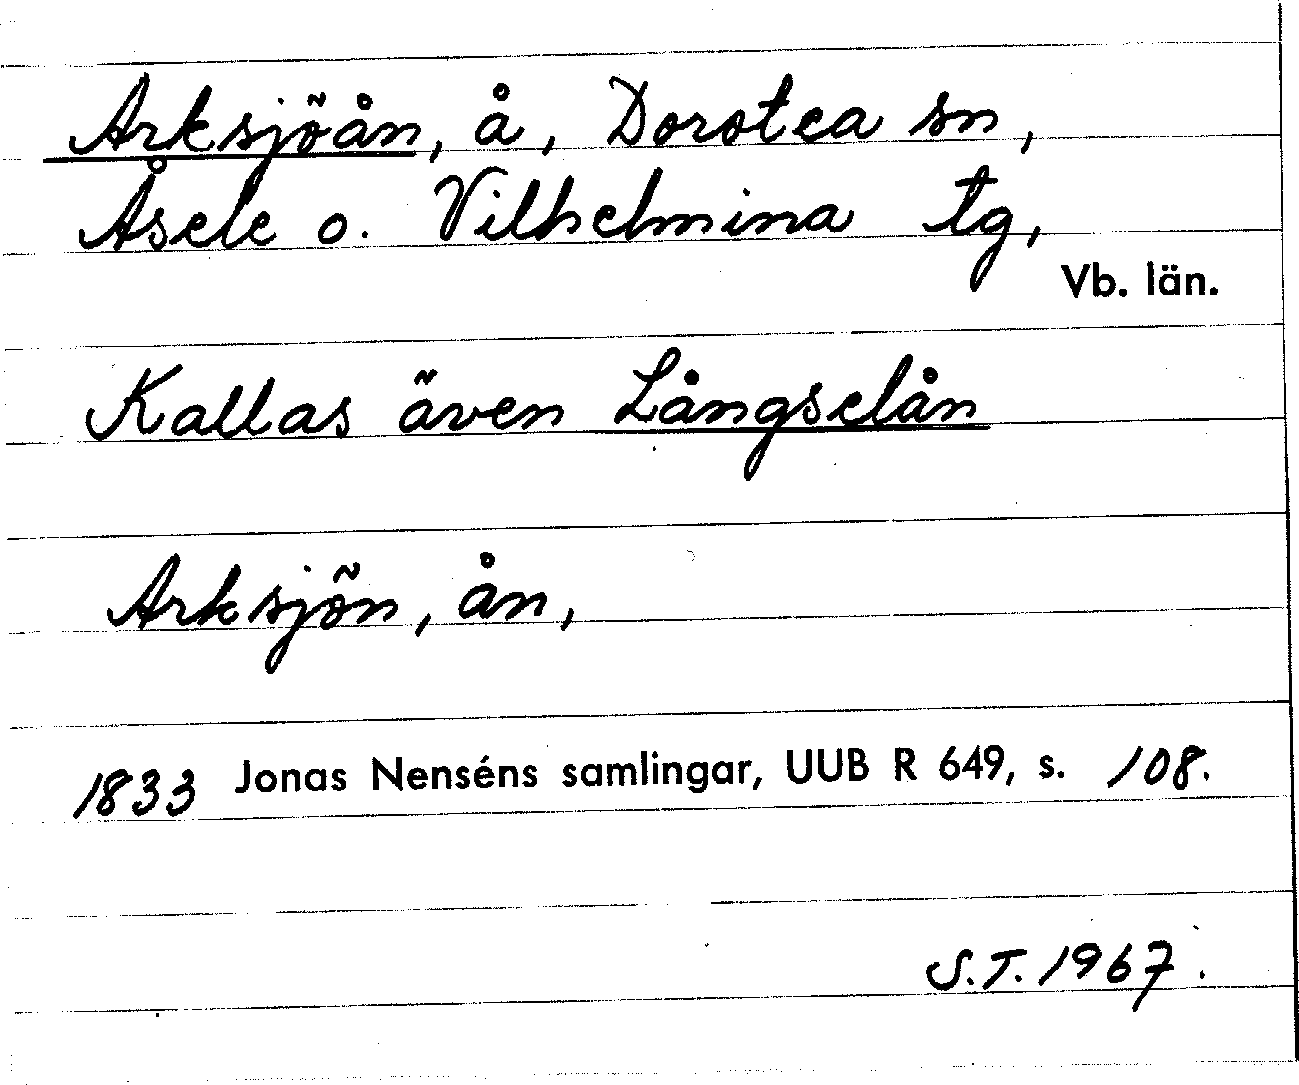 Arksjöån, å, Dorotea sn,
Åsele o. Vilhelmina tg,
Vb. län.
Kallas även Långselån
Arksjön, ån,
1833 Jonas Nenséns samlingar, UUB R 649, s. 108.
S.T. 1967.